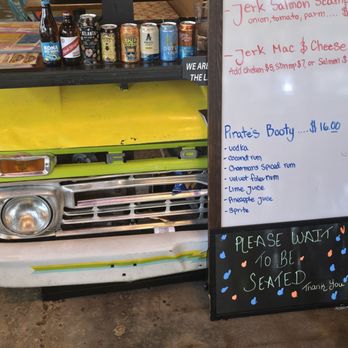 - Jerk Salmon
onion, tomato, parm.....
- Jerk Mac & Cheese
Add Chicken $5, Shrimp $7, or Salmon $
Pirate's Booty ....$16.00
- vodka
- coconut rum
- Charman's Spiced rum
- velvet falernum
- Lime juice
- Pineapple juice
- Sprite
WE ARE
THE L
PLEASE WAIT
TO BE
SEATED
Thank You
KONA